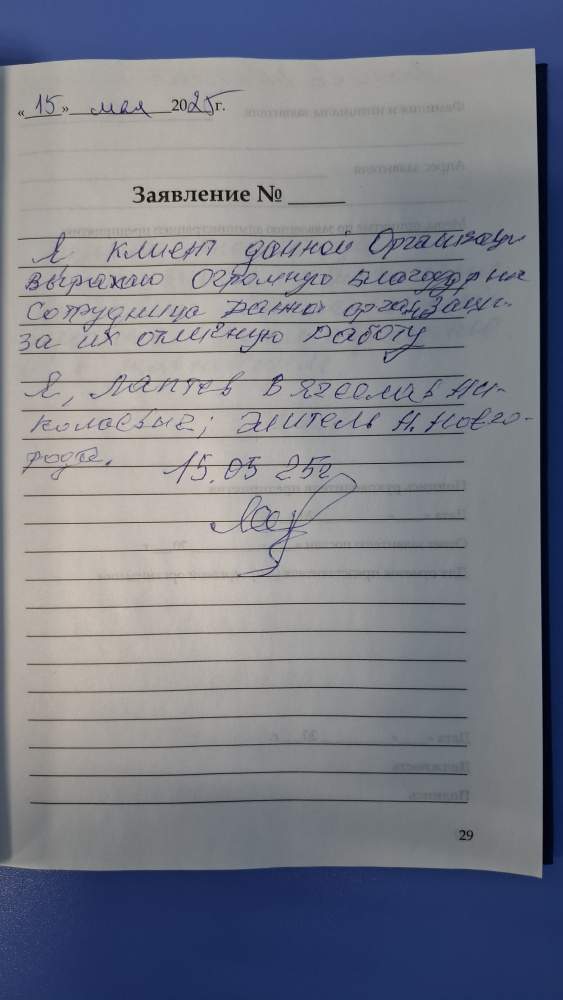 «15» мая 2025г.
Заявление № ____
Я, клиент данной Организаци
выражаю Огромную Благодарнн
Сотрудница Данной организаци.
за их отличную Работу
Я, Лаптев Вячеслав Ни-
колаевич, житель Н. Новго-
рода.
15.05 25г
29